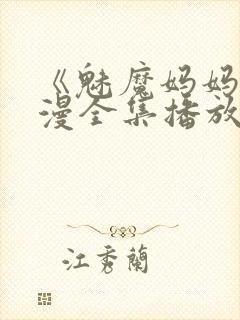 《魅魔妈妈
漫全集播放
江秀蘭